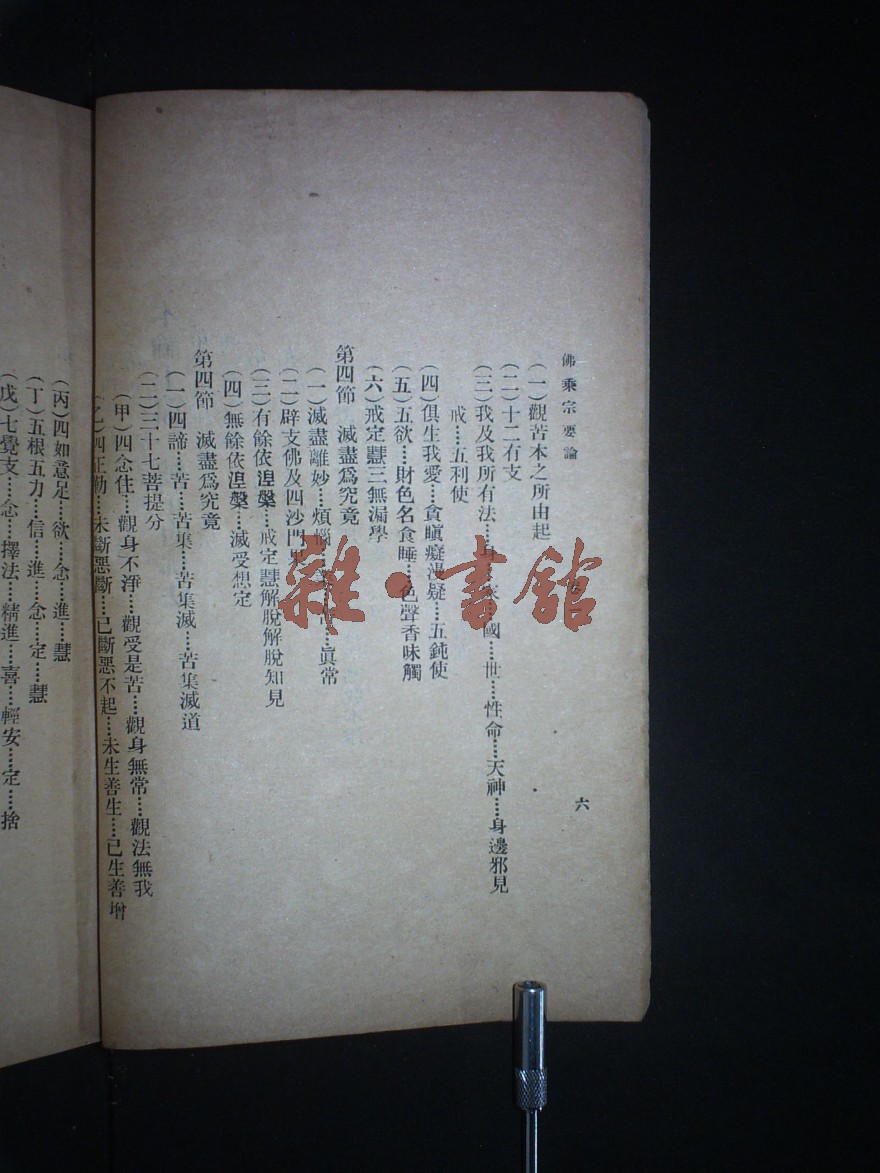 佛乘宗要論
六
(一)觀苦本之所由起
(二)十二有支
(三)我及我所有法…身…家…國…世…性命…天神…身邊邪見
戒…五利使
(四)俱生我愛…貪瞋癡漫疑…五鈍使
(五)五欲…財色名食睡…色聲香味觸
(六)戒定慧三無漏學
第四節 滅盡爲究竟
(一)滅盡離妙…煩惱…眞常
(二)辟支佛及四沙門果
(三)有餘依湼槃…戒定慧解脫解脫知見
(四)無餘依湼槃…滅受想定
第四節 滅盡爲究竟
(一)四諦…苦…苦集…苦集滅…苦集滅道
(二)三十七菩提分
(甲)四念住…觀身不淨…觀受是苦…觀身無常…觀法無我
(乙)四正勤…未斷惡斷…已斷惡不起…未生善生…已生善增
(丙)四如意足…欲…念…進…慧
(丁)五根五力…信…進…念…定…慧
(戊)七覺支…念…擇法…精進…喜…輕安…定…捨
雜·書館